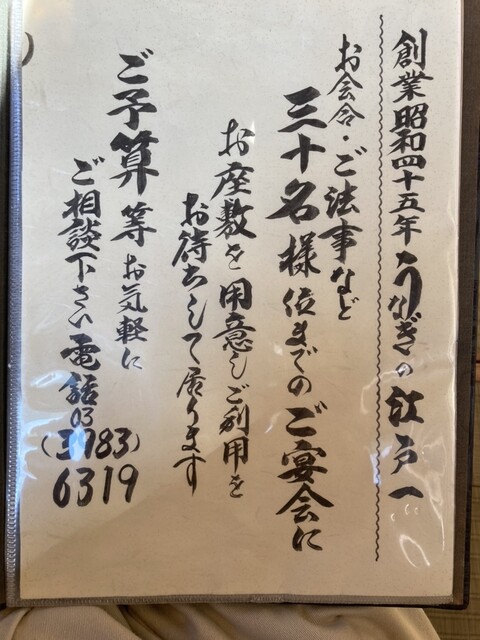 創業昭和四十五年 うなぎの江戸一
お会合・ご法事など
三十名様位までのご宴会に
お座敷を用意しご利用を
お待ちして居ります
ご予算等お気軽に
ご相談下さい 電話03(3983)6319